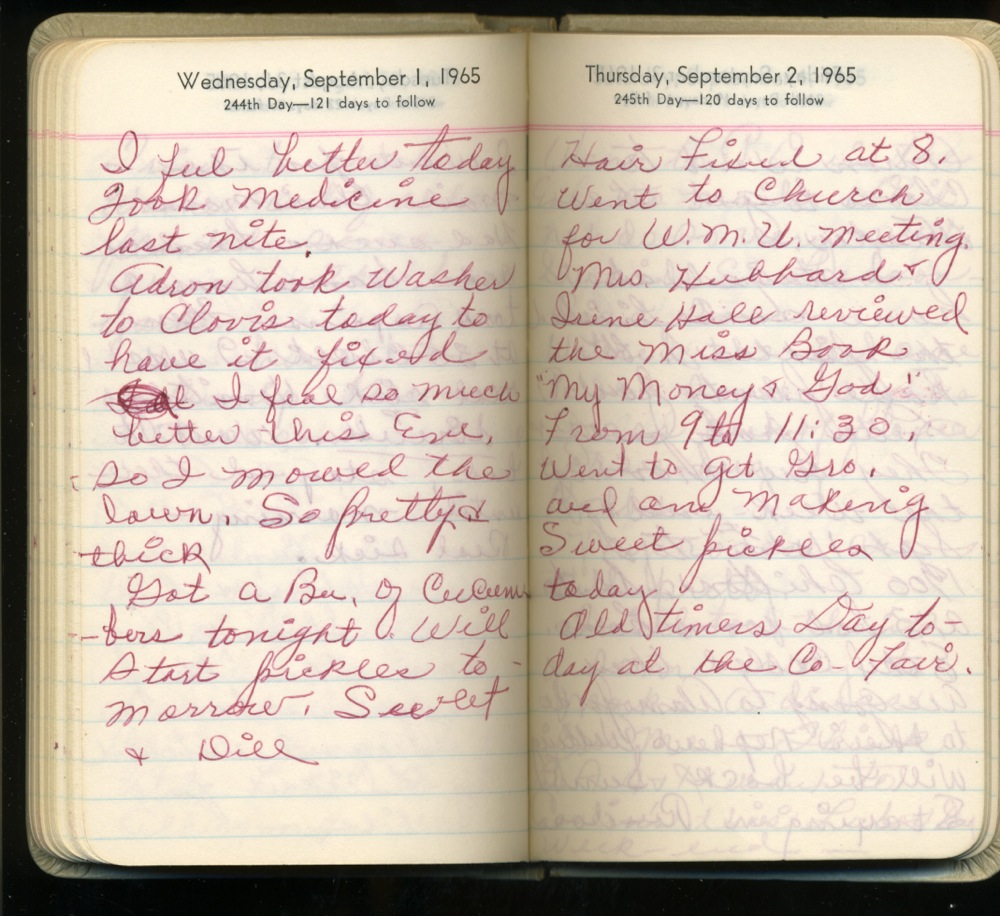 Wednesday, September 1, 1965
244th Day—121 days to follow
I feel better today
Took Medicine
last nite.
Adron took Washer
to Clovis today to
have it fixed
I feel so much
better this Eve,
so I mowed the
lawn. So pretty &
thick
Got a Bu. of Cucum
-bers tonight. Will
Start pickles to-
morrow. Sweet
& Dill
Thursday, September 2, 1965
245th Day—120 days to follow
Hair Fixed at 8.
Went to Church
for W.M.U. Meeting.
Mrs. Hubbard &
Irene Hill reviewed
the Miss Book
"My Money & God".
From 9 to 11:30.
Went to get Gro.
and am Making
Sweet pickles
today
Old timers Day to-
day at the Co-Fair.